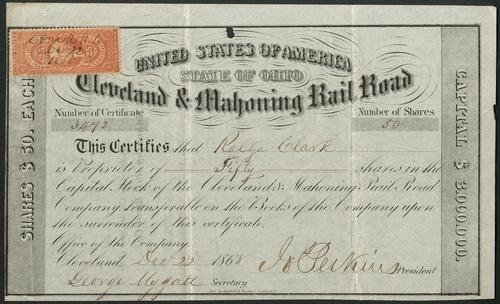 UNITED STATES OF AMERICA
STATE OF OHIO
Cleveland & Mahoning Rail Road
Number of Certificate
3472
Number of Shares
50
This Certifies that Clark
is Proprietor of Fifty shares in the
Capital Stock of the Cleveland & Mahoning Rail Road
Company transferable on the Books of the Company upon
the surrender of this certificate.
Office of the Company.
Cleveland, Dec 22 1868
Jo Perkins President
George Mygatt Secretary
SHARES $ 50. EACH
CAPITAL $ 3,000,000.